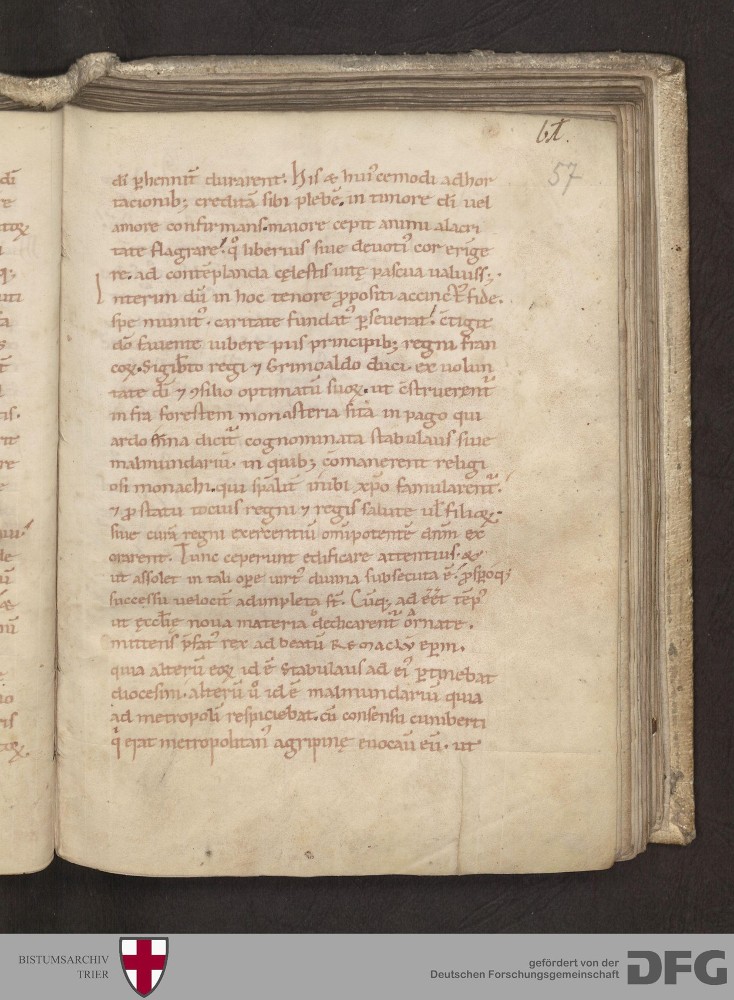 61.
57
dī p̄hennit̄ durarent. His & hui'cemodi adhor
tacionib; creditā sibi plebē. in timore dī uel
amore confirmans. maiore cepit animi alacri
tate flagrare. q̊ liberius siue deuoti' cor erige
re. ad contēplanda cęlestis uitę pascua ualuiss;.
Interim dū in hoc tenore p̄positi accinct' fide.
spe munit'. caritate fundat' p̄seuerat. c̄tigit
iubere piis principib; regni fran
coꝝ. Sigib̄to regi ⁊ Grimoaldo duci. ex uolun
tate dī ⁊ ꝯsilio optimatū suoꝝ. ut c̄struerent̄
in fra forestem monasteria sita in pago qui
ardoenna dicit̄ cognominata stabulaus siue
malmundariū. in quib; cōmanerent religi
osi monachi. qui sp̄alit̄ inibi xp̄o famularent̄.
⁊ ꝓ statu tocius regni ⁊ regis salute ul' filioꝝ.
siue curā regni exercentiū om̄ipotentē dn̄m ex
orarent. Tunc ceperunt edificare attentius. &
ut assolet in tali oꝑe uirt' diuina subsecuta ē.
successu uelocit̄ adimpleta st̄. Cūq; ad tēp'
ut ęccl̄ię noua materia dedicarent̄ ornate.
mittens p̄fat' rex ad beatū REMACLŪ ep̄m.
quia alterū eoꝝ id ē Stabulaus ad ei' p̄tinebat
diocesim. alterū ů id ē malmundariū quia
ad metropoli respiciebat. cū consensu cuniberti
q̇ erat metropolitan' agripinę euocau eū. ut
BISTUMSARCHIV
TRIER
gefördert von der
Deutschen Forschungsgemeinschaft
DFG